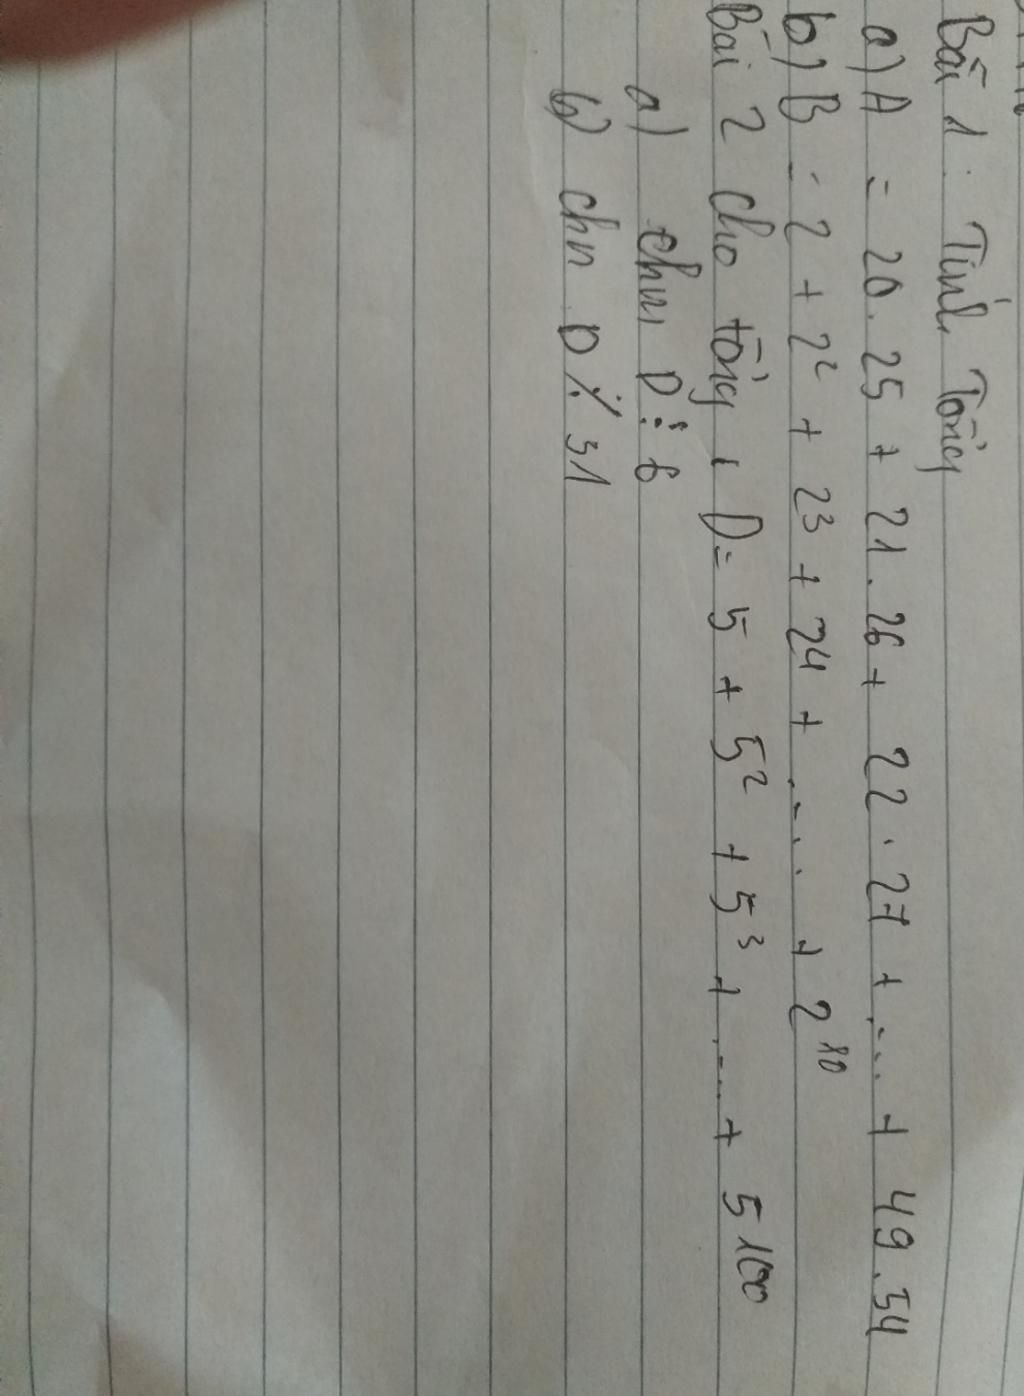 Bài 1: Tính Tổng
a) A = 20.25 + 21.26 + 22.27 + ... + 49.54
b) B = 2 + 2² + 2³ + 2⁴ + .... + 2¹⁰
Bài 2 cho tổng: D = 5 + 5² + 5³ + ... + 5¹⁰⁰
a) chm D ⋮ 6
b) chm D ⋮̸ 31